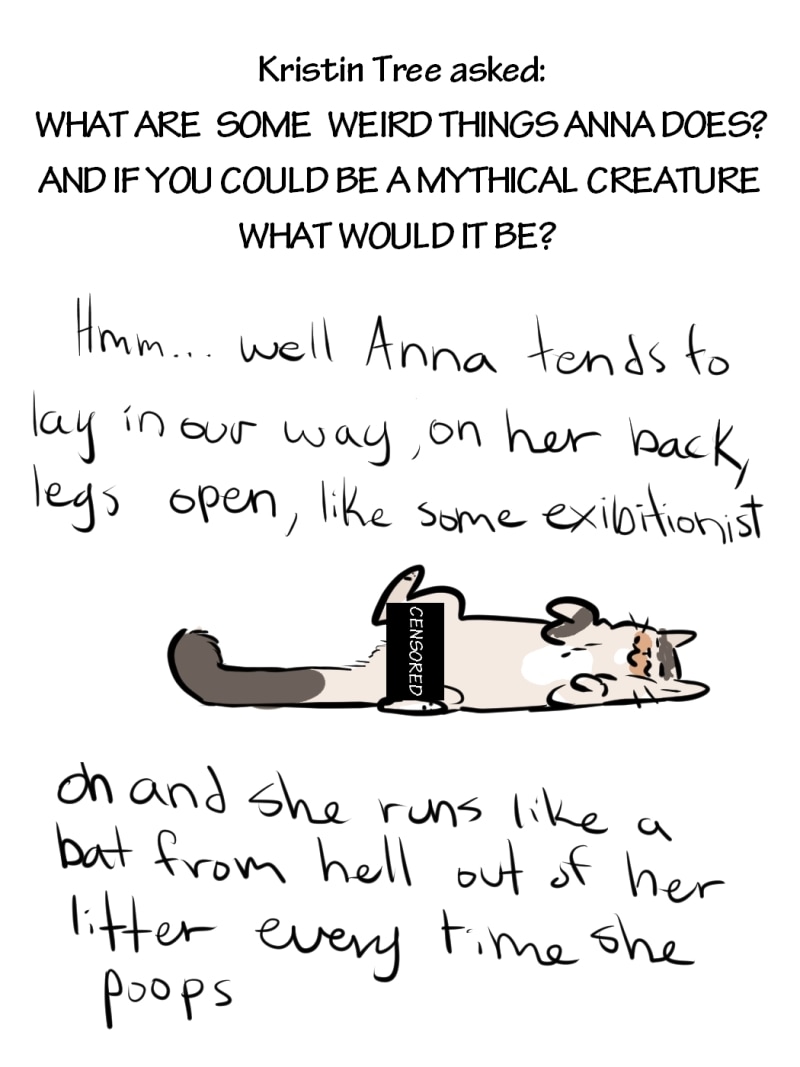 Kristin Tree asked:
WHAT ARE SOME WEIRD THINGS ANNA DOES?
AND IF YOU COULD BE A MYTHICAL CREATURE
WHAT WOULD IT BE?
Hmm... well Anna tends to
lay in our way, on her back,
legs open, like some exibitionist
CENSORED
oh and she runs like a
bat from hell out of her
litter every time she
poops